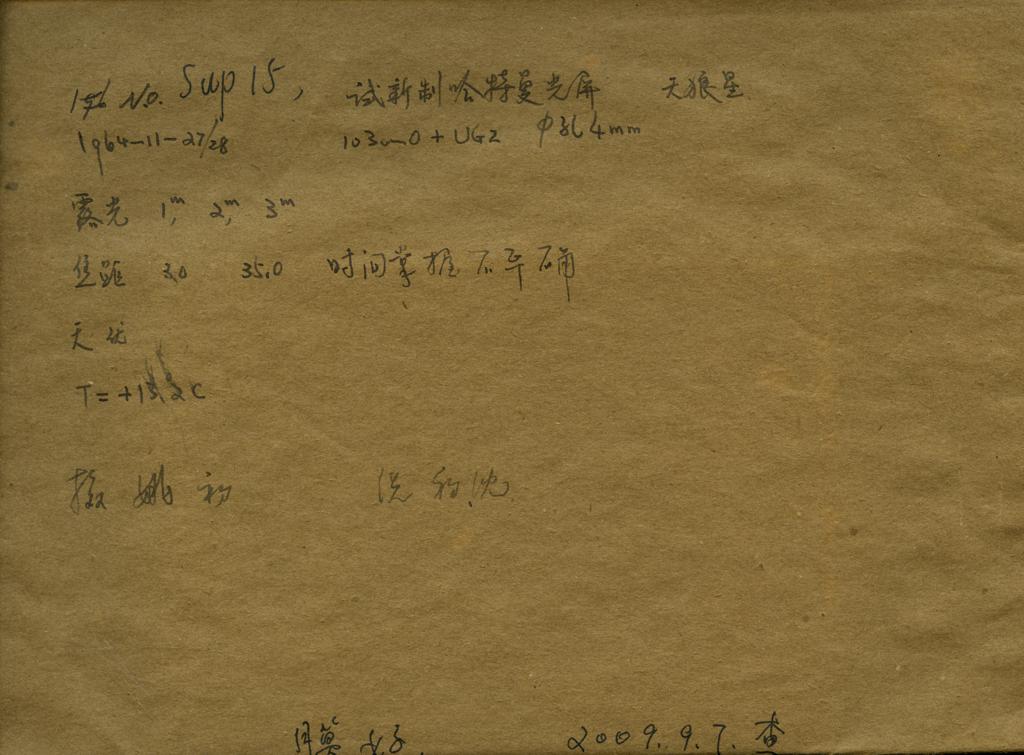 No. Sup 15, 试新制哈特曼光屏 天狼星
1964-11-27/28 103a-O + UG2 φ364mm
露光 1ᵐ, 2ᵐ, 3ᵐ
焦距 35.0 时间掌握不准确
天
T = +1 C
摄 姚 初 洗 初 沈
膜好 2009.9.7.查